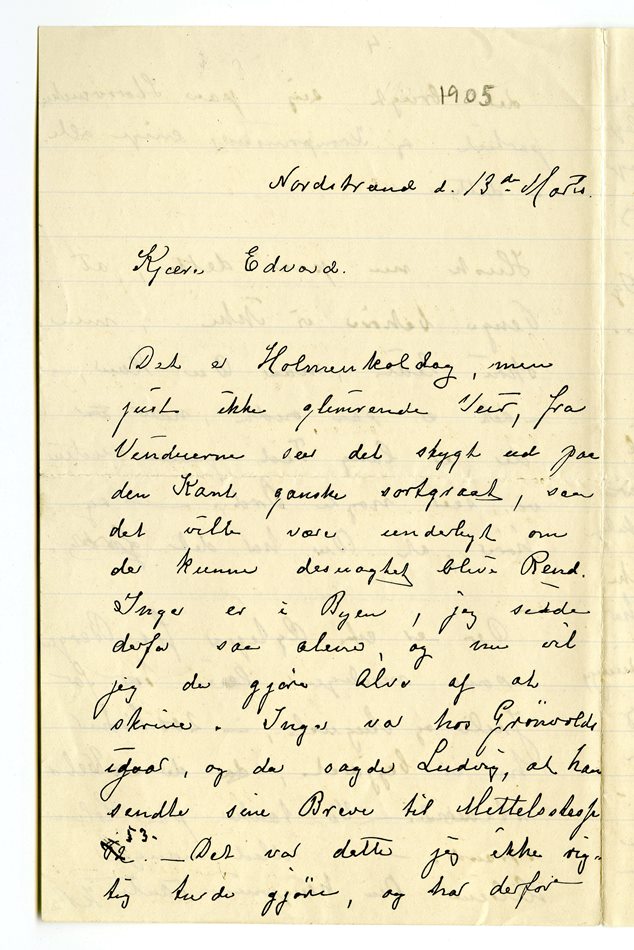 1905
Nordstrand d. 13de Marts.
Kjære Edvard.
Det er Holmenkoldag, men
just ikke glimrende Veir, fra
Vinduerne ser det skygt ud paa
den Kant ganske sortgraat, saa
det vilde være underligt om
der kunne desuagtet blive Rend.
Inger er i Byen, jeg sidder
derfor saa alene, og nu vil
jeg da gjøre Alvor af at
skrive. Inger var hos Grönvolds
igaar, og da sagde Ludvig, at han
sendte sine Breve til Mittelsstr
53.
– Det var dette jeg ikke rig-
tig turde gjøre, og har derfor